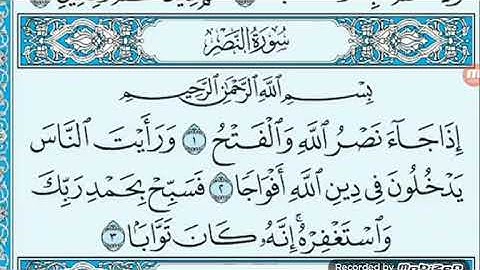 سُورَةُ النَّصْرِ
بِسْمِ اللَّهِ الرَّحْمَٰنِ الرَّحِيمِ
إِذَا جَآءَ نَصْرُ اللَّهِ وَالْفَتْحُ ١ وَرَأَيْتَ النَّاسَ
يَدْخُلُونَ فِي دِينِ اللَّهِ أَفْوَاجًا ٢ فَسَبِّحْ بِحَمْدِ رَبِّكَ
وَاسْتَغْفِرْهُ ۚ إِنَّهُۥ كَانَ تَوَّابًا ٣
Recorded by